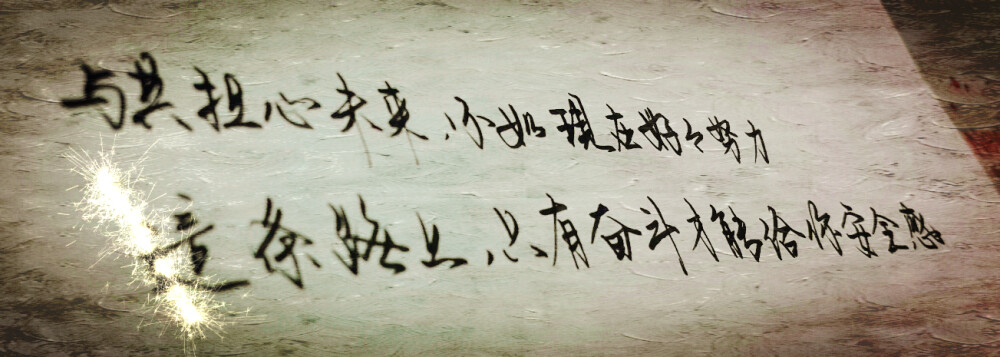 与其担心未来,不如现在好々努力
这条路上,只有奋斗才能给你安全感